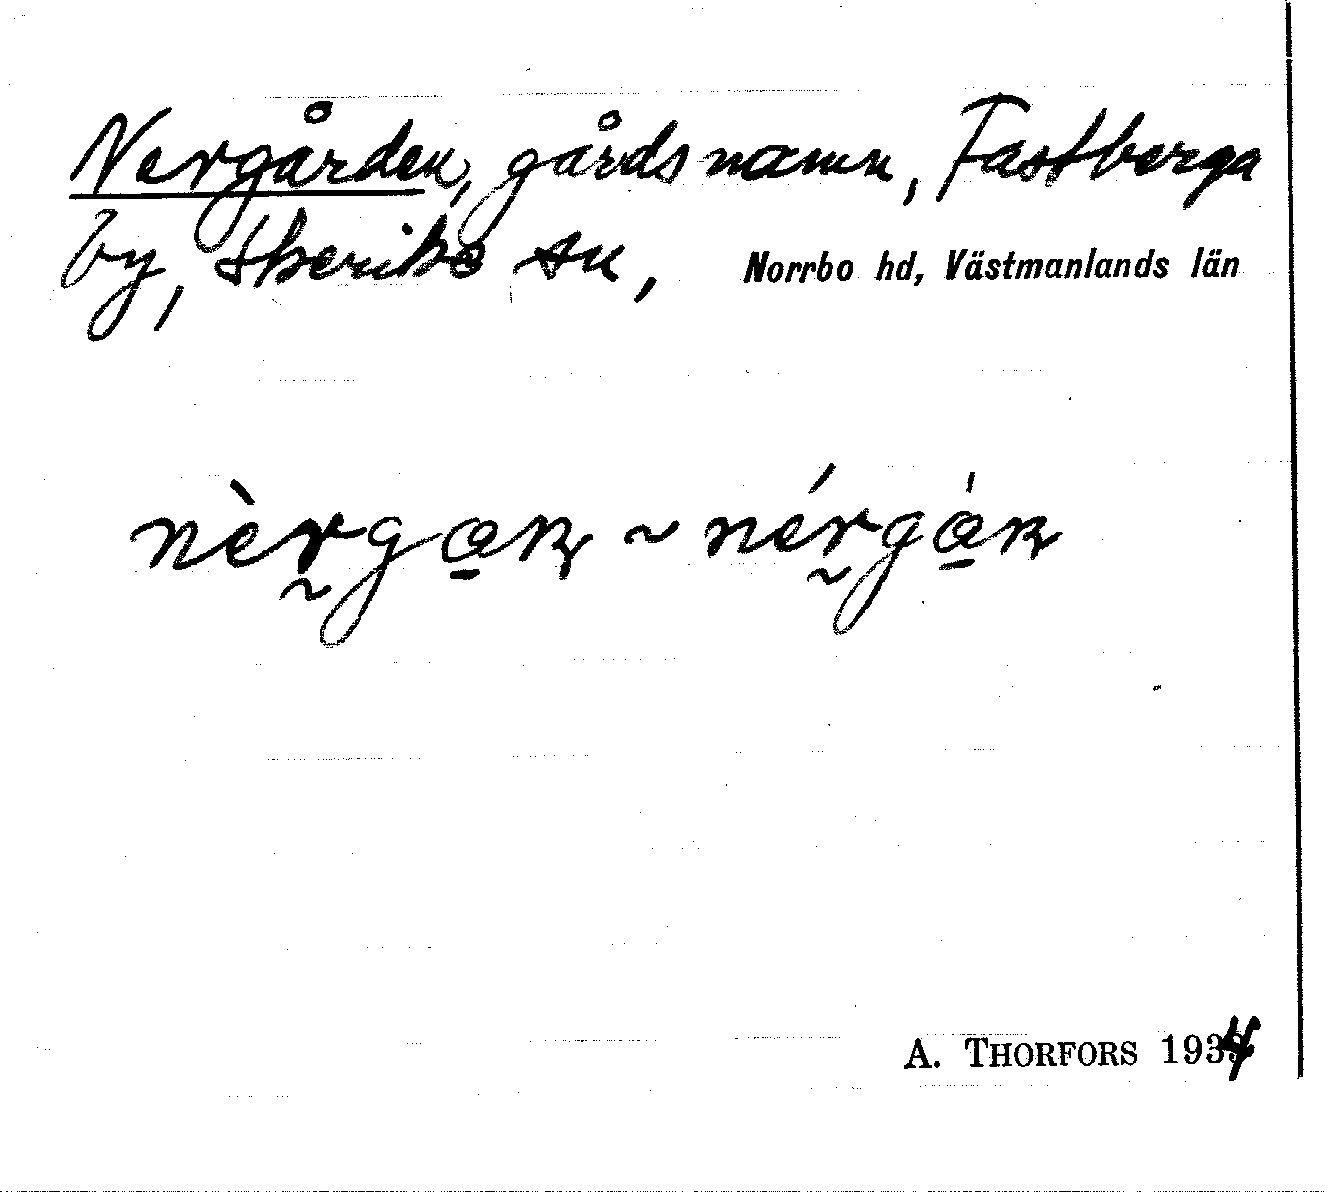 Nergården, gårdsnamn, Fastberga
by, Skerike sn, Norrbo hd, Västmanlands län
A. THORFORS 1934